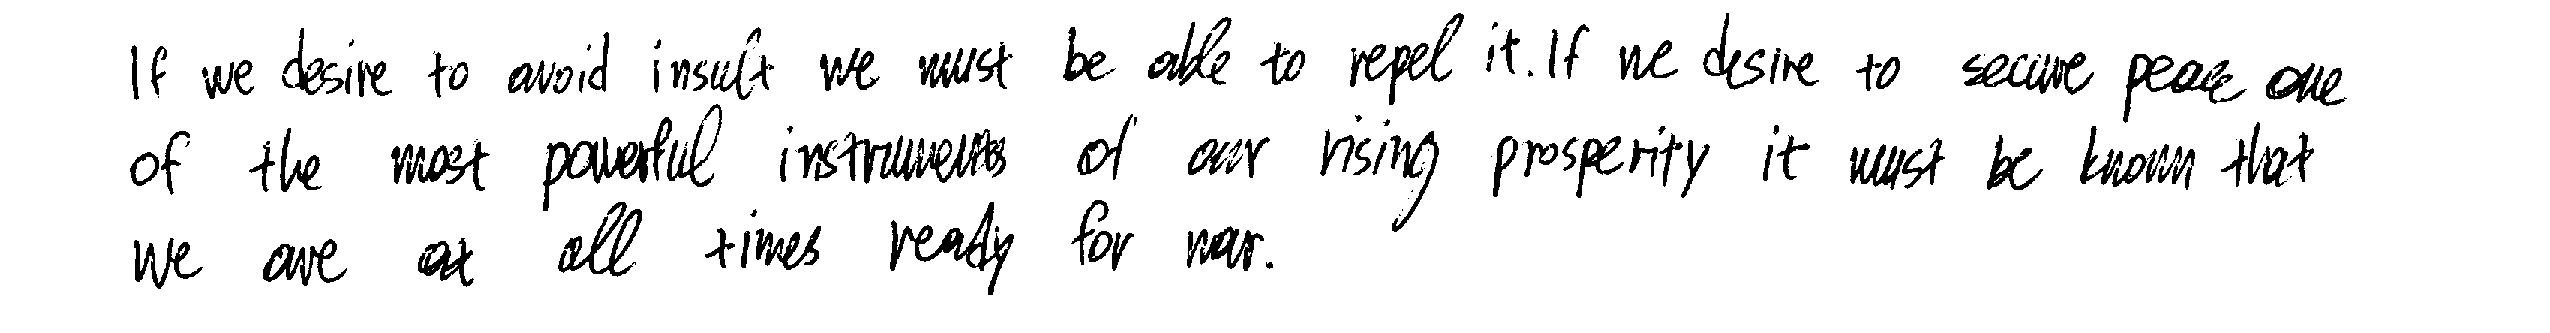 If we desire to avoid insult we must be able to repel it. If we desire to secure peace one
of the most powerful instruments of our rising prosperity it must be known that
we are at all times ready for war.